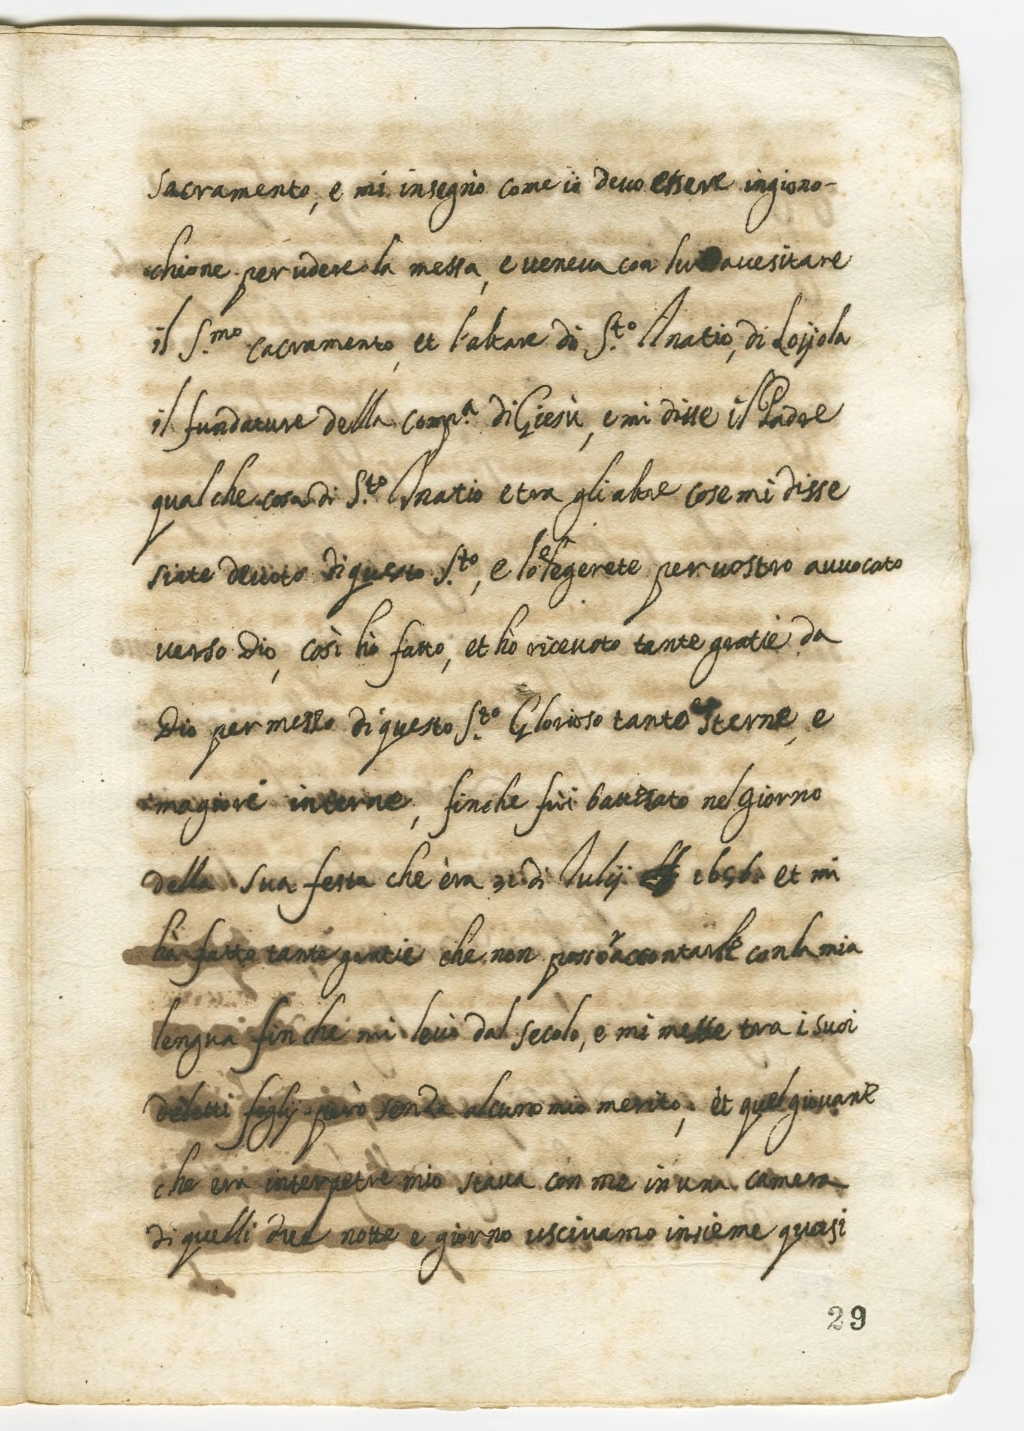 sacramento, e mi insegnò come io devo essere ingiono-
chione per udere la messa, e veneva con lui a vesitare
il S.mo sacramento, et l'altare di S.to Inatio, di Loijola
il fundature della comp.a di Giesù, e mi disse il Padre
qualche cosa di S.to Inatio e tra gli altre cose mi disse
siate devoto di questo S.to, e lo elegerete per vostro avvocato
verso Dio, così hò fatto, et hò ricevoto tante gratie da
Dio per messo di questo S.to Glorioso tanto esterne, e
magiore interne, finche fui battizato nel giorno
della sua festa che èra 31 di Julij 1656. et mi
hà fatto tante gratie che non posso raccontarle con la mia
lengua finche mi levò dal secolo, e mi messe tra i suoi
deletti figlij però senza alcuno mio merito, et quel giovane
che era interpetre mio stava con me in una camera
di quelli due notte e giorno uscivamo insieme quasi
29